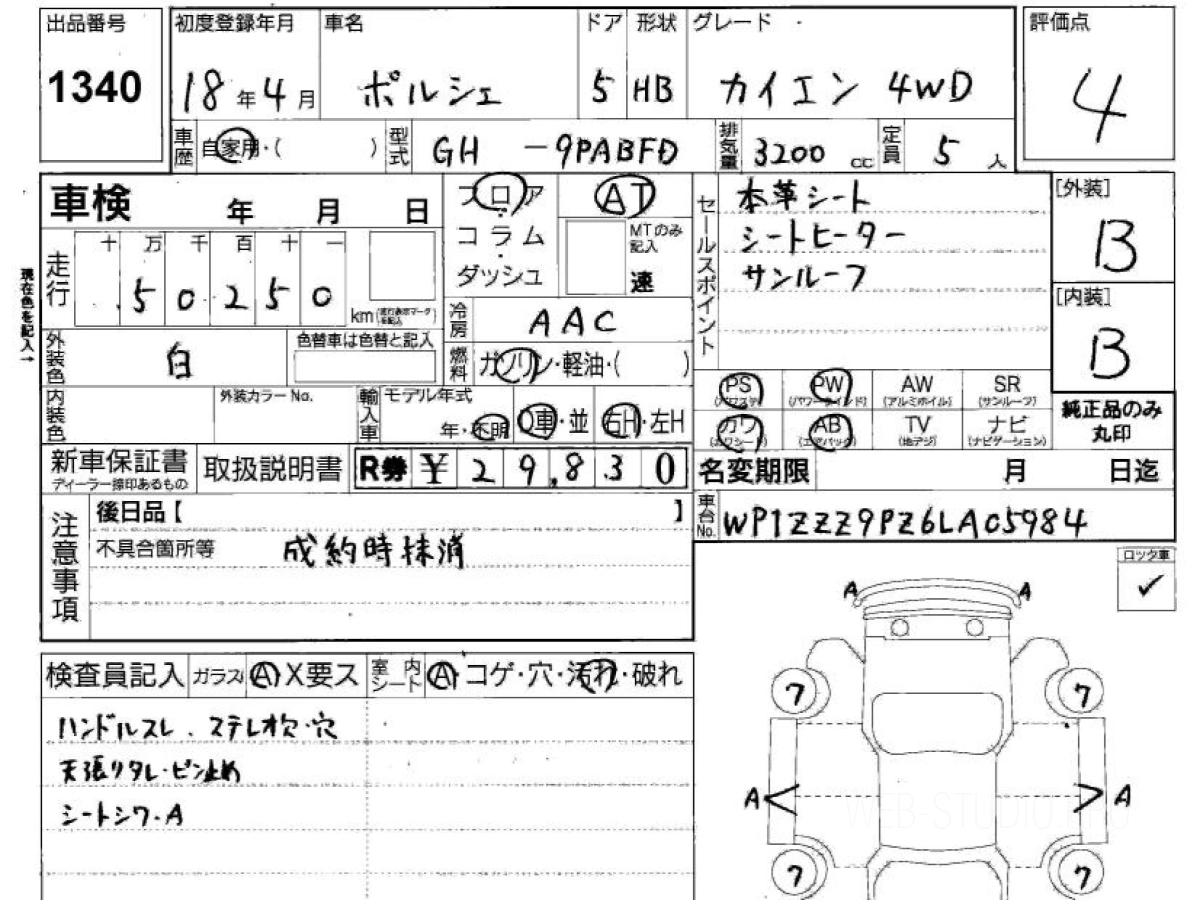 出品番号 初度登録年月 車名 ドア 形状 グレード 評価点
1340 18年4月 ポルシェ 5 HB カイエン 4WD 4
車歴 自家用・( ) 型式 GH -9PABFD 排気量 3200 cc 定員 5 人
車検 年 月 日
フロア AT
コラム
ダッシュ
MTのみ記入
速
現在色を記入→
走行 十 万 千 百 十 一
50250 km
セールスポイント
本革シート
シートヒーター
サンルーフ
[外装]
B
[内装]
B
冷房 AAC
燃料 ガソリン・軽油・( )
外装色 白 色替車は色替と記入
内装色 外装カラーNo. 輸入車 モデル年式
年・不明 D車・並 右H・左H
PS PW AW SR
(パワステ) (パワーウインド) (アルミホイル) (サンルーフ)
カワ AB TV ナビ
(カワシート) (エアバック) (地デジ) (ナビゲーション)
純正品のみ
丸印
新車保証書 取扱説明書 R券 ¥29,830
ディーラー捺印あるもの
名変期限 月 日迄
注意事項
後日品【 】
不具合箇所等 成約時抹消
車台No. WP1ZZZ9PZ6LA05984
ロック車
✓
検査員記入 ガラス A X要ス 室内シート A・コゲ・穴・汚れ・破れ
ハンドルスレ、ステレオ欠・穴
天張リタレ・ピン止め
シートシワ・A
A A
ワ ワ
A A
WEB-STUDIO.PRO
ワ ワ